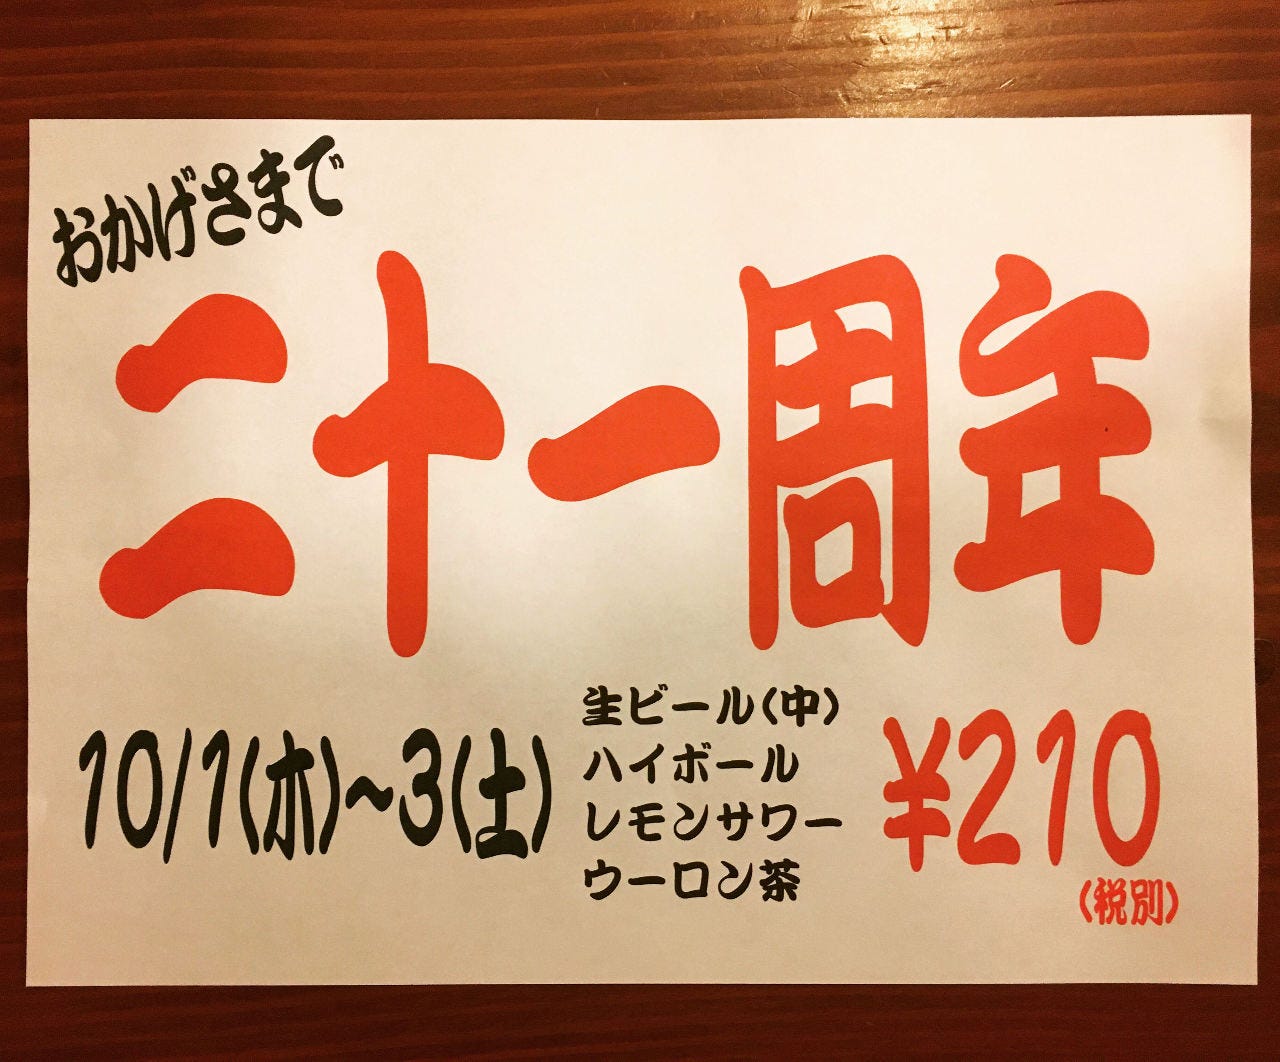 おかげさまで
二十一周年
10/1(木)~3(土)
生ビール(中)
ハイボール
レモンサワー
ウーロン茶
¥210
(税別)